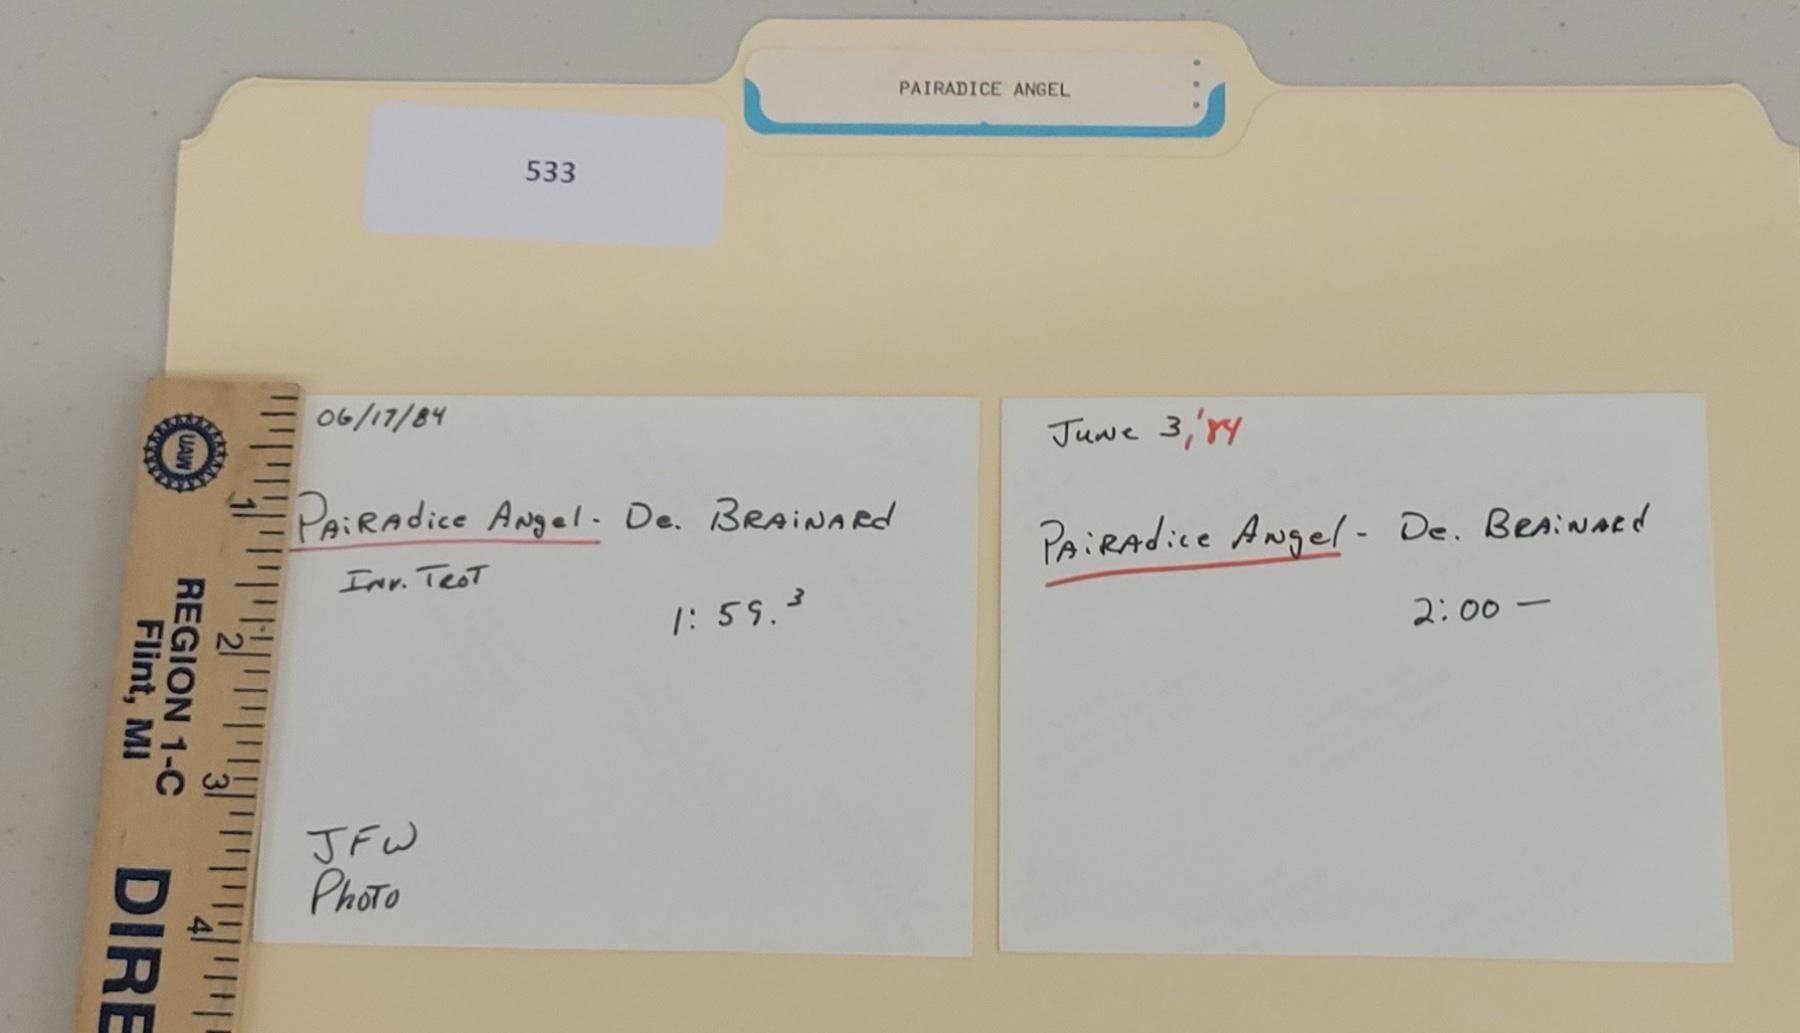 PAIRADICE ANGEL
533
06/17/84
PAiRAdice Angel - De. BRAiNARd
Inv. TroT
1:59.³
JFW
PhoTo
June 3, '84
PAiRAdice Angel - De. BRAiNARd
2:00 —
UAW
REGION 1-C
Flint, MI
DIRE
1
2
3
4